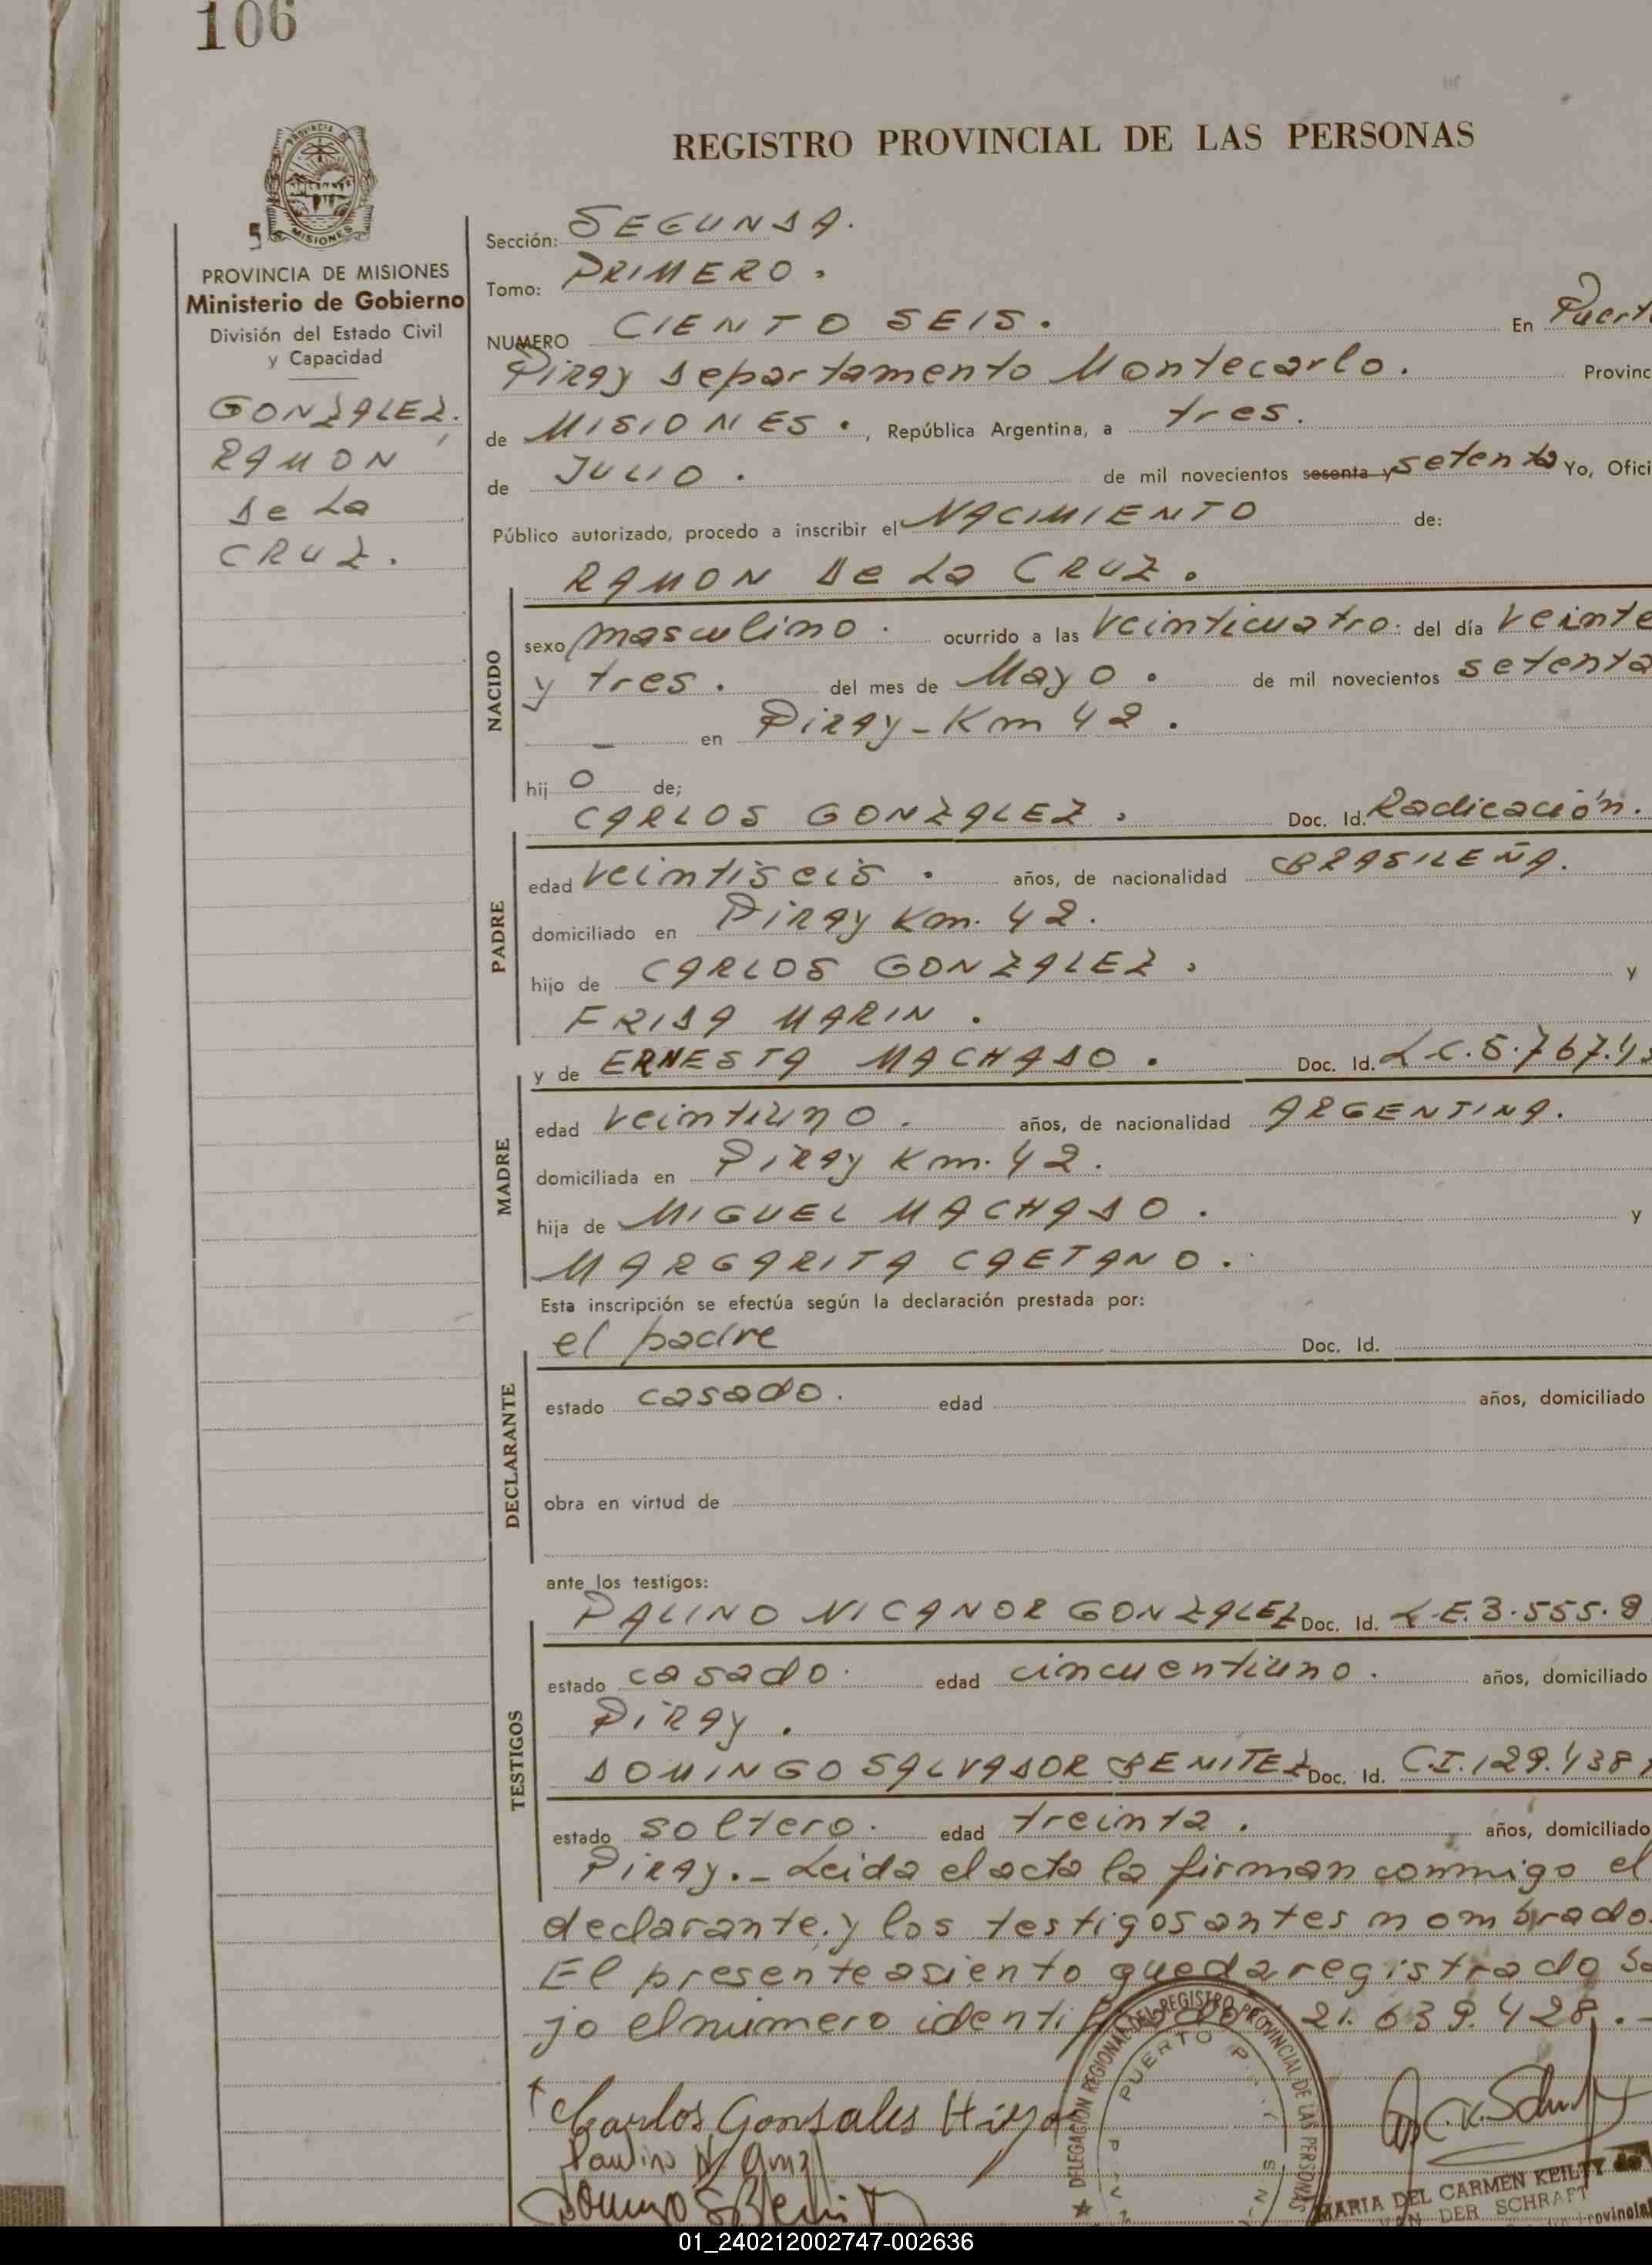 106
REGISTRO PROVINCIAL DE LAS PERSONAS
MISIONES
5
PROVINCIA DE MISIONES
Ministerio de Gobierno
División del Estado Civil
y Capacidad
GONZALEZ.
RAMON
de La
CRUZ.
Sección: SEGUNDA.
Tomo: PRIMERO.
NUMERO CIENTO SEIS. En Puert
Piray departamento Montecarlo. Provinc
de MISIONES., República Argentina, a tres.
de JULIO. de mil novecientos sesenta y setenta Yo, Ofici
Público autorizado, procedo a inscribir el NACIMIENTO de:
RAMON de La CRUZ.
NACIDO
sexo masculino. ocurrido a las veinticuatro. del día veinte
y tres. del mes de Mayo. de mil novecientos setenta
— en Piray-Km 42.
hij o de;
CARLOS GONZALEZ. Doc. Id. Radicación.
PADRE
edad veintiseis. años, de nacionalidad BRASILEÑA.
domiciliado en Piray Km. 42.
hijo de CARLOS GONZALEZ. y
FRIDA MARIN.
y de ERNESTA MACHADO. Doc. Id. L.C.5.767.4
MADRE
edad veintiuno. años, de nacionalidad ARGENTINA.
domiciliada en Piray Km. 42.
hija de MIGUEL MACHADO. y
MARGARITA CAETANO.
Esta inscripción se efectúa según la declaración prestada por:
el padre Doc. Id.
DECLARANTE
estado casado. edad años, domiciliado
obra en virtud de
ante los testigos:
PALINO NICANOR GONZALEZ Doc. Id. L.E.3.555.9
TESTIGOS
estado casado. edad cincuentiuno. años, domiciliado
Piray.
DOMINGO SALVADOR BENITEZ Doc. Id. C.I.129.438
estado soltero. edad treinta. años, domiciliado
Piray.- Leida el acta la firman conmigo el
declarante y los testigos antes nombrado
El presente asiento queda registrado ba
jo el número identificador 21.639.428.-
Carlos Gonsales Hijo
Paulino N Gonz
Domingo S Benit
DELEGACION REGIONAL DEL REGISTRO PROVINCIAL DE LAS PERSONAS
PUERTO
MARIA DEL CARMEN KEILTY de
VAN DER SCHRAFT
Provincial
01_240212002747-002636